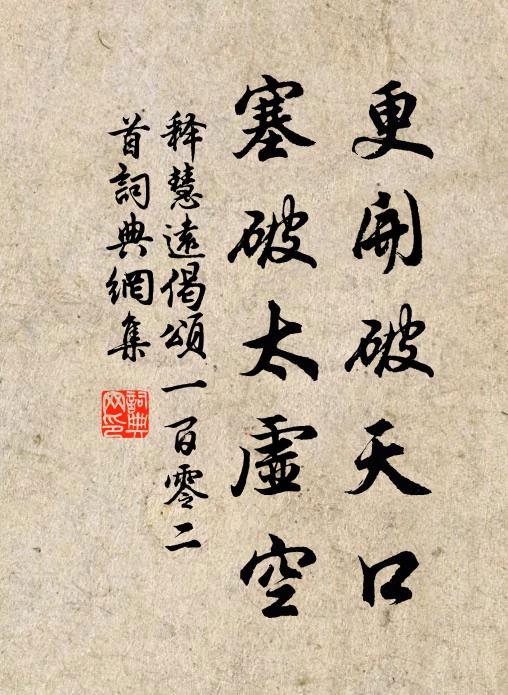 更開破天口
塞破太虛空
釋慧遠偈頌一百零二
首詞典網集
詞典
网印